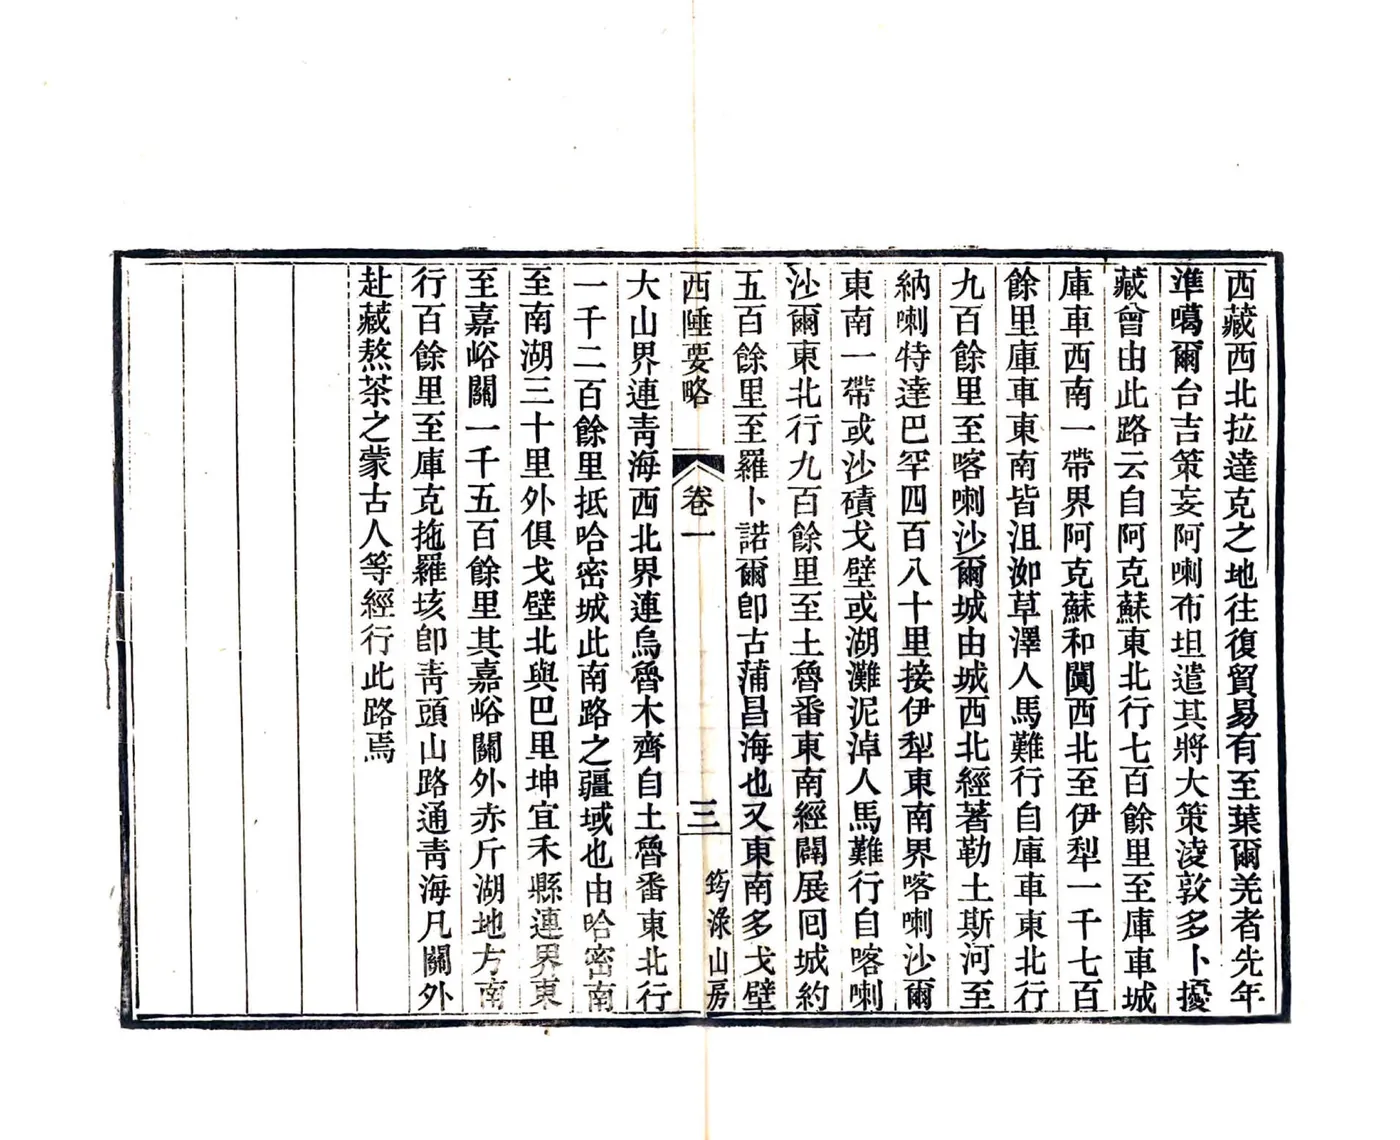 西藏西北拉達克之地往復貿易有至葉爾羌者先年
準噶爾台吉策妄阿喇布坦遣其將大策凌敦多卜擾
藏曾由此路云自阿克蘇東北行七百餘里至庫車城
庫車西南一帶界阿克蘇和闐西北至伊犁一千七百
餘里庫車東南皆沮洳草澤人馬難行自庫車東北行
九百餘里至喀喇沙爾城由城西北經著勒土斯河至
納喇特達巴罕四百八十里接伊犁東南界喀喇沙爾
東南一帶或沙磧戈壁或湖灘泥淖人馬難行自喀喇
沙爾東北行九百餘里至土魯番東南經闢展回城約
五百餘里至羅卜諾爾卽古蒲昌海也又東南多戈壁
西陲要略 卷一 三 筠淥山房
大山界連靑海西北界連烏魯木齊自土魯番東北行
一千二百餘里抵哈密城此南路之疆域也由哈密南
至南湖三十里外俱戈壁北與巴里坤宜禾縣連界東
至嘉峪關一千五百餘里其嘉峪關外赤斤湖地方南
行百餘里至庫克拖羅垓卽靑頭山路通靑海凡關外
赴藏熬茶之蒙古人等經行此路焉